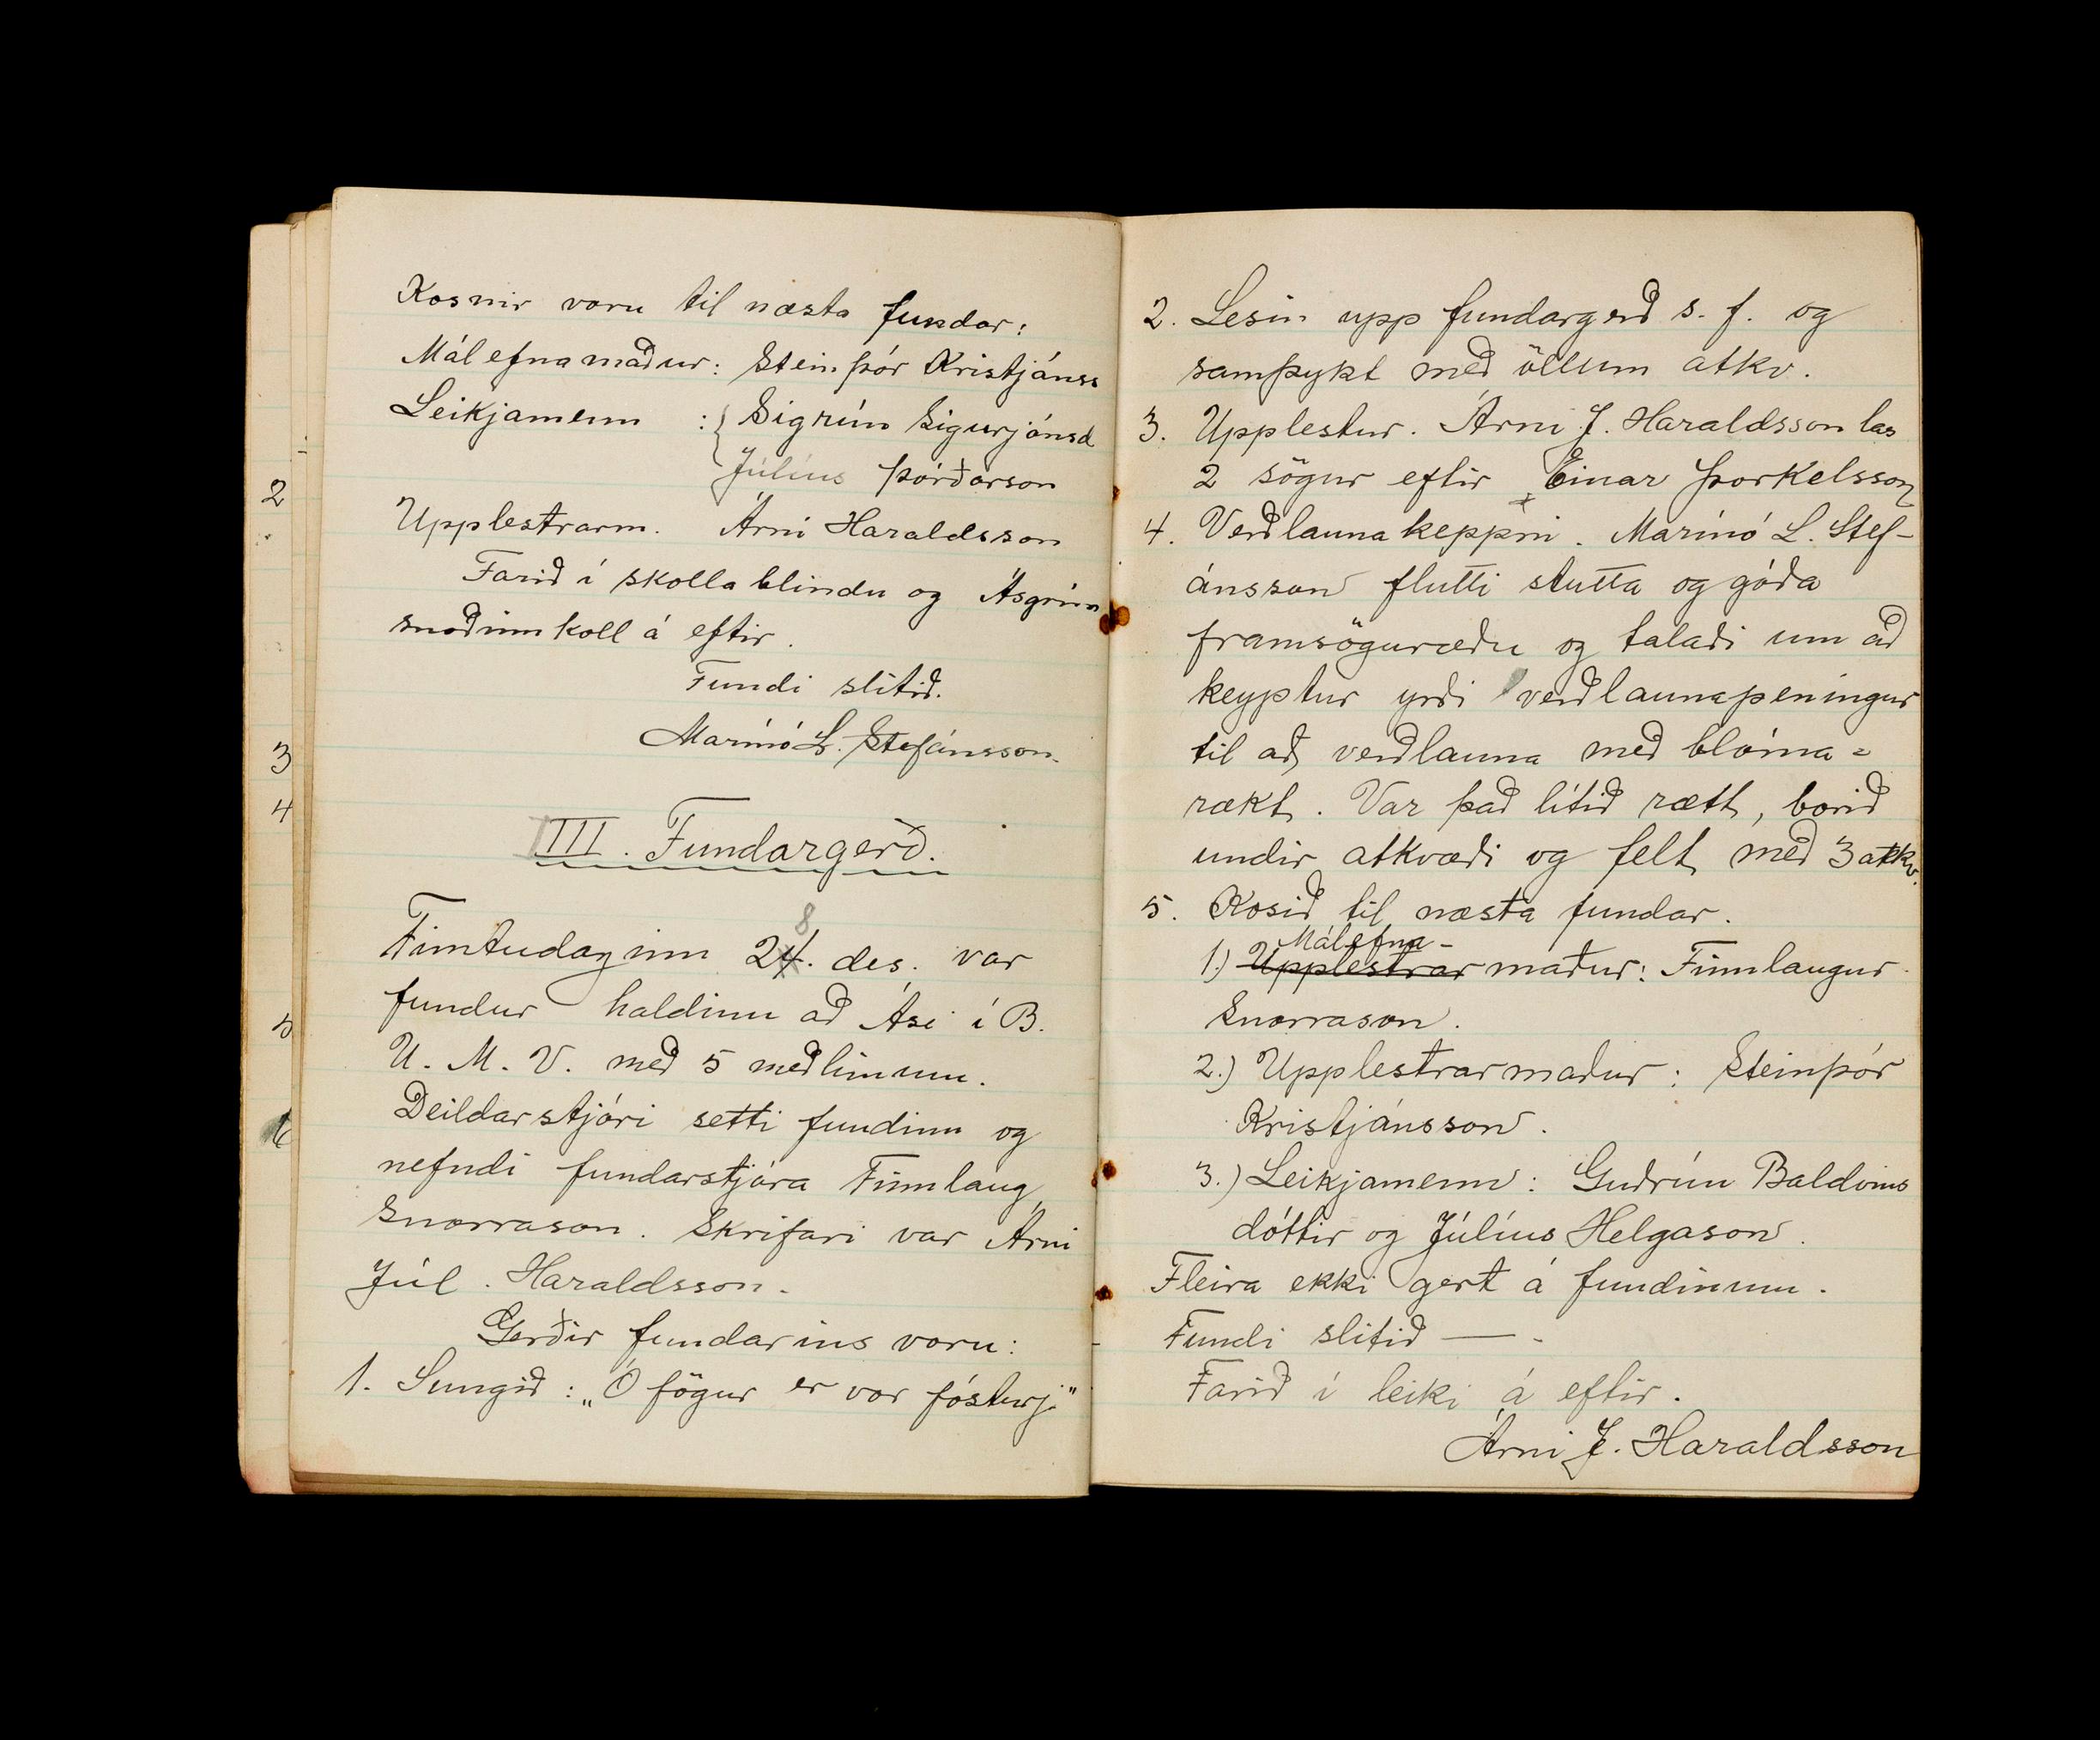 Kosnir voru til næsta fundar:
Málefnamaður: Steinþór Kristjánss
Leikjamenn : { Sigrún Sigurjónsd
Júlíus Þórðarson
Upplestrarm. Árni Haraldsson
Farið í skollablindu og Ásgrím
snoðinnkoll á eftir.
Fundi slitið.
Marínó L. Stefánsson.
III. Fundargerð.
8
Fimtudaginn 24. des. var
fundur haldinn að Ási í B.
U. M. V. með 5 meðlimum.
Deildarstjóri setti fundinn og
nefndi fundarstjóra Finnlaug
Snorrason. Skrifari var Árni
Júl. Haraldsson.
Gerðir fundarins voru:
1. Sungið: „Ó fögur er vor fósturj"
2
3
4
5
6
2. Lesin upp fundargerð s. f. og
samþykt með öllum atkv.
3. Upplestur. Árni J. Haraldsson las
2 sögur eftir Einar Þorkelsson
4. Verðlaunakeppni. Marínó L. Stef-
ánsson flutti stutta og góða
framsöguræðu og talaði um að
keyptur yrði verðlaunapeningur
til að verðlauna með blóma=
rækt. Var það lítið rætt, borið
undir atkvæði og felt með 3 atkv.
5. Kosið til næsta fundar.
Málefna-
1.) Upplestrar maður: Finnlaugur
Snorrason.
2.) Upplestrarmaður: Steinþór
Kristjánsson.
3.) Leikjamenn: Guðrún Baldvins
dóttir og Júlíus Helgason.
Fleira ekki gert á fundinum.
Fundi slitið —-
Farið í leiki á eftir.
Árni J. Haraldsson